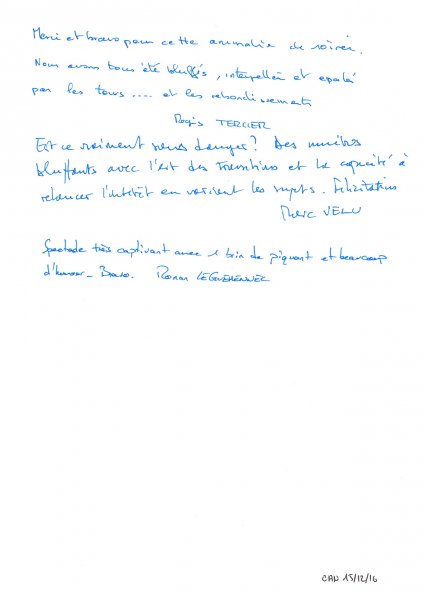 Merci et bravo pour cette animation de soirée.
Nous avons tous été bluffés, interpellés et épatés
par les tours .... et les rebondissements
Régis TERCIER
Est ce vraiment sans danger? Des numéros
bluffants avec l'art des transitions et la capacité à
relancer l'intérêt en variant les sujets. Félicitations
VELU
Spectacle très captivant avec 1 brin de piquant et beaucoup
d'humour_ Bravo. Ronan LEGUEHENNEC
CAD 15/12/16